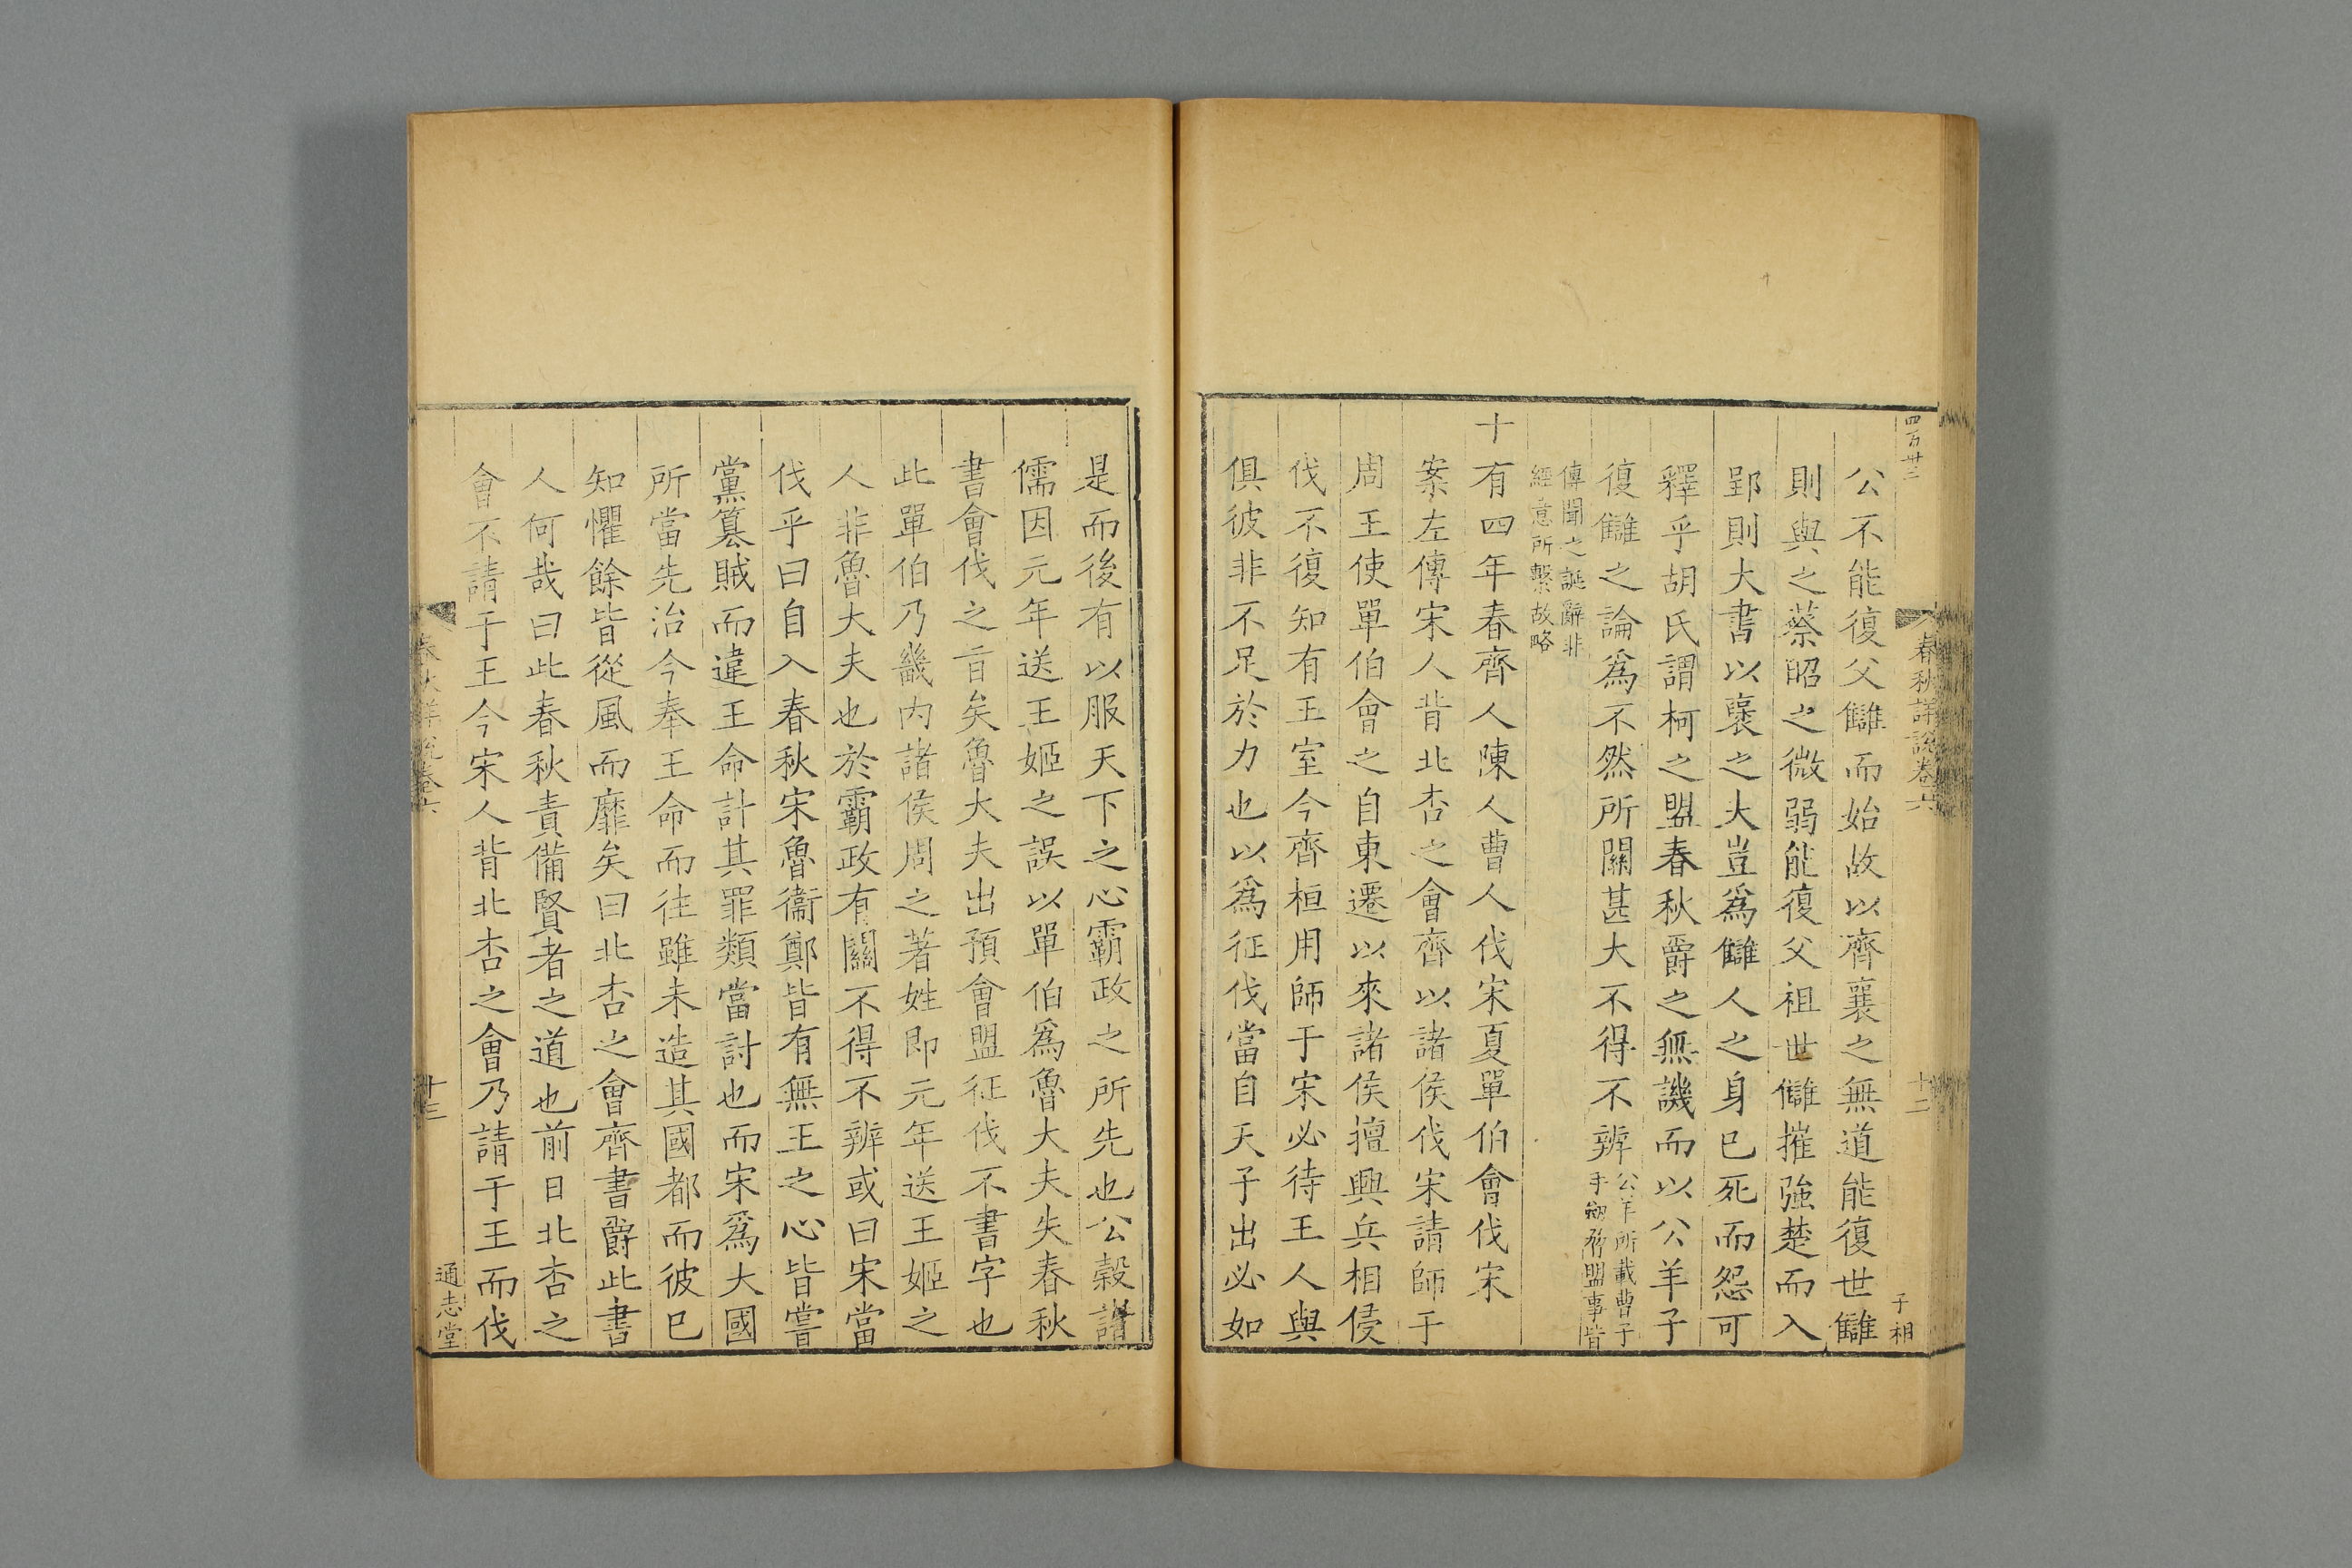 四百卅三
春秋詳說卷六
十二
子相
公不能復父讎而始故以齊襄之無道能復世讎
則與之蔡昭之微弱能復父祖世讎摧強楚而入
郢則大書以襃之夫豈爲讎人之身已死而怨可
釋乎胡氏謂柯之盟春秋爵之無譏而以公羊子
復讎之論爲不然所關甚大不得不辨
公羊所載曹子
手劒刼盟事皆
傳聞之誕辭非
經意所繫故略
十有四年春齊人陳人曹人伐宋夏單伯會伐宋
案左傳宋人背北杏之會齊以諸侯伐宋請師于
周王使單伯會之自東遷以來諸侯擅興兵相侵
伐不復知有王室今齊桓用師于宋必待王人與
俱彼非不足於力也以爲征伐當自天子出必如
是而後有以服天下之心霸政之所先也公榖諸
儒因元年送王姬之誤以單伯爲魯大夫失春秋
書會伐之旨矣魯大夫出預會盟征伐不書字也
此單伯乃畿内諸侯周之著姓即元年送王姬之
人非魯大夫也於霸政有關不得不辨或曰宋當
伐乎曰自入春秋宋魯衞鄭皆有無王之心皆嘗
黨簒賊而違王命計其罪類當討也而宋爲大國
所當先治今奉王命而往雖未造其國都而彼已
知懼餘皆從風而靡矣曰北杏之會齊書爵此書
人何哉曰此春秋責備賢者之道也前日北杏之
會不請于王今宋人背北杏之會乃請于王而伐
春秋詳說卷六
十三
通志堂